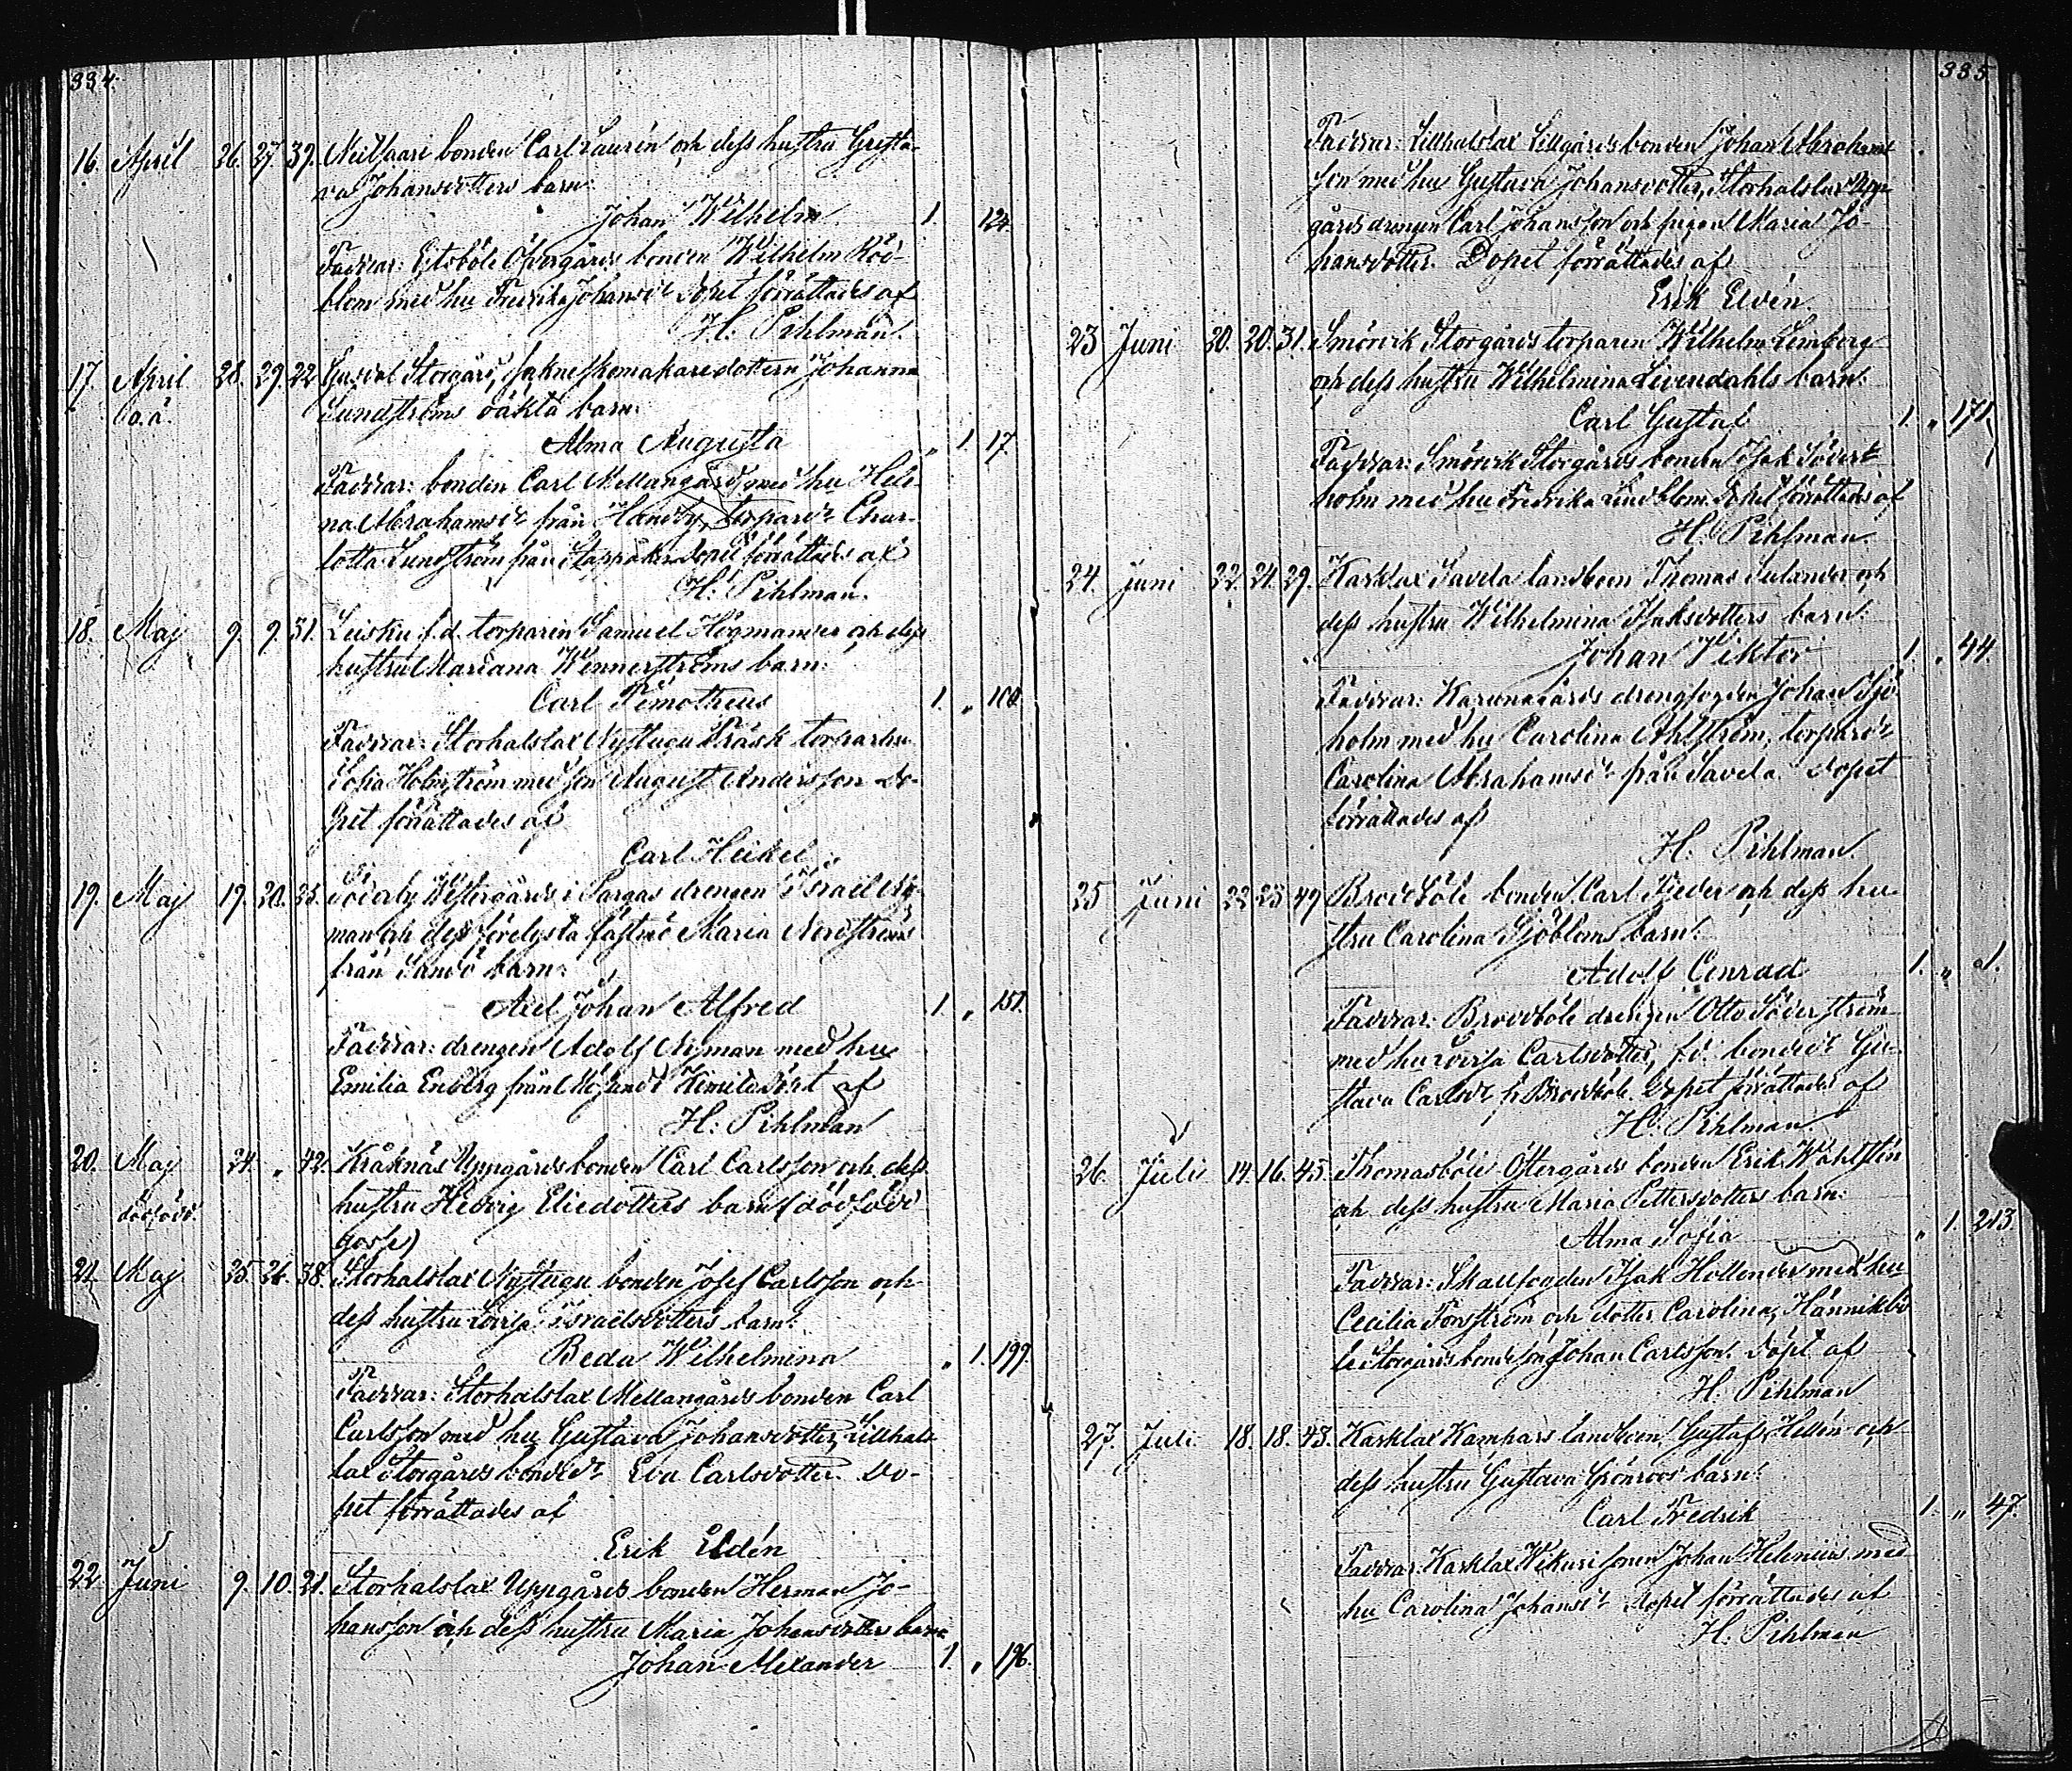 334.
16. April 26. 27. 39. bonden Carl Laurén och dess hustru Gusta-
va Johansdotters barn:
Johan Wilhelm 1. 124.
Faddrar: Eitsböle Öfvergårds bonden Wilhelm Röd-
blom med hu Fredrika Johansdr Dopet förrättades af
H. Pihlman.
17. April 28. 29. 22. Storgård, skomakaredottern Johanna
o.ä. Lundströms oäkta barn:
Alma Augusta „ 1. 17.
Faddrar: bonden Carl Mellangård med hu Hele-
na Abrahamsdr från torparedr Char-
lotta Lundström från Dopet förrättades af
H. Pihlman.
18. Maj 9. 9. 31. Leisku f.d. torparen Samuel Högmander och dess
hustru Mariana Wennerströms barn:
Carl Timotheus 1. „ 100.
Faddrar: Storhalslax Nystugu Träsk torparhu
Sofia Holmström med son August Andersson Do-
pet förrättades af
Carl Heikel.
19. Maj 19. 20. 25. Söderby Westergårds i Pargas drengen Israel Ny-
man och dess förelysta fästmö Maria Nordströms
från Sandö barn:
Axel Johan Alfred 1. „ 151.
Faddrar: drengen Adolf Nyman med hu
Emilia Enberg från Kimito Döpt af
H. Pihlman
20. Maj 24. „ 42. Kråknäs Uppgårds bonden Carl Carlsson och dess
dödfödd. hustru Hedvig Eliedotters barn (dödfödd
gosse)
21. Maj 25. 26. 38. Storhalslax Nystugu bonden Josef Carlsson och
dess hustru Lovisa Israelsdotters barn:
Beda Wilhelmina „ 1. 199.
Faddrar: Storhalslax Mellangårds bonden Carl
Carlsson med hu Gustava Johansdotter, Lillhals-
lax Storgårds bondedr Eva Carlsdotter. Do-
pet förrättades af
Erik Eldén
22. Juni 9. 10. 21. Storhalslax Uppgårds bonden Herman Jo-
hansson och dess hustru Maria Johansdotters barn
Johan Alexander 1. „ 196.
335
Faddrar: Lillhalslax Lillgårds bonden Johan Abrahams
son med hu Gustava Johansdotter, Storhalslax Upp-
gårds drengen Carl Johansson och pigan Maria Jo-
hansdotter. Dopet förrättades af
Erik Eldén
23 Juni 20. 20. 31. Smörvik Storgårds torparen Wilhelm Limberg
och dess hustru Wilhelmina Livendahls barn:
Carl Gustaf 1. „ 171.
Faddrar: Smörvik Storgårds bonden Isak Söder-
holm med hu Fredrika Lindblom. Dopet förrättades af
H. Pihlman
24. Juni 22. 24. 29. Karklax Savela landboen Thomas Sulander och
dess hustru Wilhelmina Isaksdotters barn:
Johan Viktor 1. „ 44.
Faddrar: Karunagårds drengfogden Johan Sjö-
holm med hu Carolina Ahlström, torparedr
Carolina Abrahamsdr från Savela. Dopet
förrättades af
H. Pihlman.
25 Juni 22 23 49 Brodböle bonden Carl Feder och dess hu-
stru Carolina Sjöbloms barn:
Adolf Conrad 1. „ 1.
Faddrar: Brodböle drengen Otto Söderström
med hu Lovisa Carlsdotter, f.d. bondedr Gu-
stava Carlsdr fr Brodböle. Dopet förrättades af
H. Pihlman
26. Juli 14. 16. 45. Thomasböle Östergårds bonden Erik Wahlstén
och dess hustru Maria Pettersdotters barn:
Alma Sofia „ 1. 213
Faddrar: Skallfogden Isak Hollender med hu
Cecilia Forsström och dotter Carolina, Hännikbö
le Storgårds bondeson Johan Carlsson. Döpt af
H. Pihlman
27. Juli 18. 18. 43. Karklax Kamhars landboen Gustaf Hellén och
dess hustru Gustava Grönroos barn:
Carl Fredrik 1. „ 47.
Faddrar: Karklax Johan Helenius med
hu Carolina Johansdr Dopet förrättades af
H. Pihlman